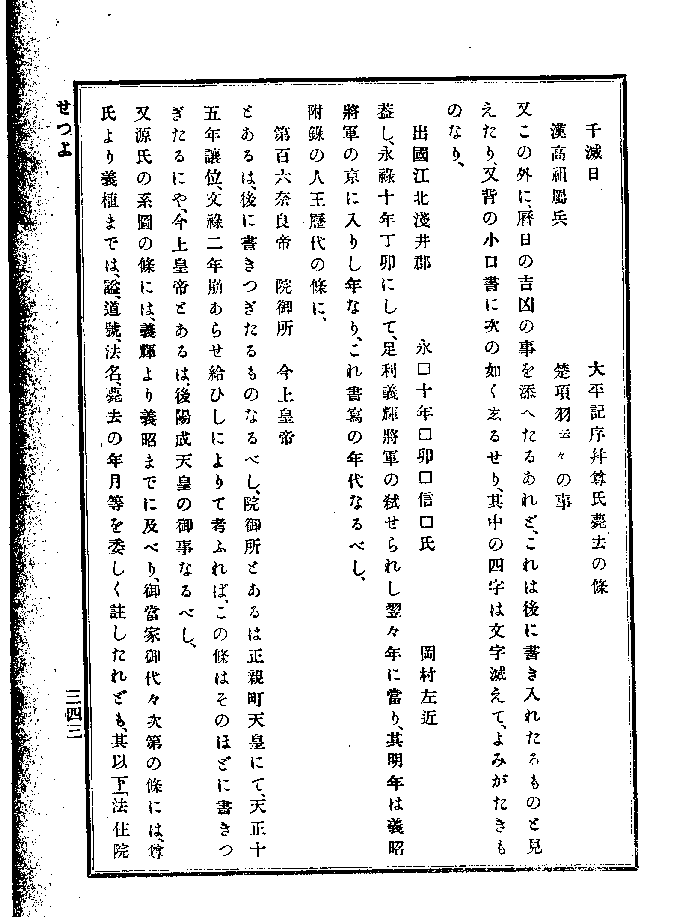 千滅日　大平記序幷尊氏薨去の條
漢高祖馬兵　楚項羽云々の事
又この外に、曆日の吉凶の事を添へたるあれど、これは後に書き入れたるものと見
えたり、又背の小口書に次の如く玄るせり、其中の四字は文字滅えて、よみがたきも
のなり、
出國江北淺井郡　永□十年□卯□信□氏　岡村左近
蓋し、永祿十年丁卯にして、足利義輝將軍の弑せられし翌々年に當り、其明年は義昭
將軍の京に入りし年なり、これ書寫の年代なるべし、
附錄の人王歷代の條に、
第百六奈良帝　院御所　今上皇帝
とあるは、後に書きつぎたるものなるべし、院御所とあるは正親町天皇にて、天正十
五年讓位、文祿二年崩あらせ給ひしによりて考ふれば、この條はそのほどに書きつ
ぎたるにや、今上皇帝とあるは、後陽成天皇の御事なるべし、
又源氏の系圖の條には、義輝より義昭までに及べり、御當家御代々次第の條には、尊
氏より義植までは、諡、道號、法名、薨去の年月等を委しく註したれども、其以下「法住院
せつよ
三四三